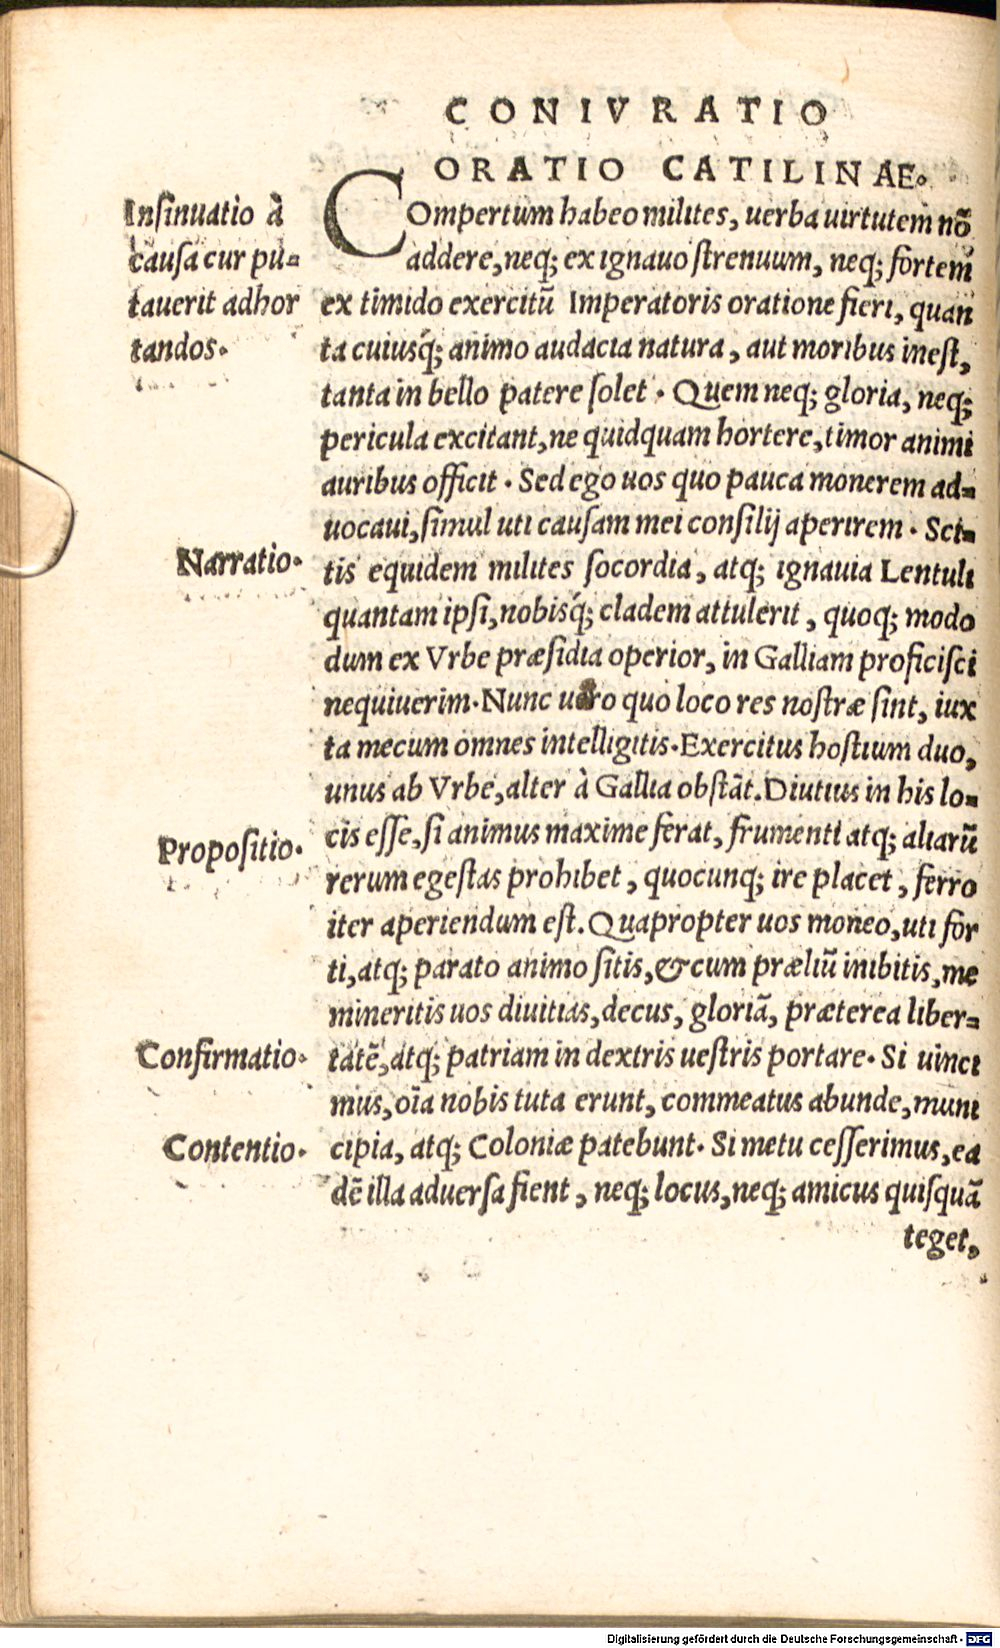 CONIVRATIO
ORATIO CATILINAE.
Insinuatio à
causa cur pu-
tauerit adhor
tandos.
COmpertum habeo milites, uerba uirtutem nō
addere, neq; ex ignauo strenuum, neq; fortem
ex timido exercitū Imperatoris oratione fieri, quan
ta cuiusq́; animo audacia natura, aut moribus inest,
tanta in bello patere solet. Quem neq; gloria, neq;
pericula excitant, ne quidquam hortere, timor animi
auribus officit. Sed ego uos quo pauca monerem ad-
uocaui, simul uti causam mei consilij aperirem. Sci-
Narratio.
tis equidem milites socordia, atq; ignauia Lentuli
quantam ipsi, nobisq́; cladem attulerit, quoq; modo
dum ex Vrbe præsidia operior, in Galliam proficisci
nequiuerim. Nunc uero quo loco res nostræ sint, iux
ta mecum omnes intelligitis. Exercitus hostium duo,
unus ab Vrbe, alter à Gallia obstāt. Diutius in his lo-
cis esse, si animus maxime ferat, frumenti atq; aliarū
Propositio.
rerum egestas prohibet, quocunq; ire placet, ferro
iter aperiendum est. Quapropter uos moneo, uti for
ti, atq; parato animo sitis, & cum præliū inibitis, me
mineritis uos diuitias, decus, gloriā, præterea liber-
Confirmatio.
tatē, atq; patriam in dextris uestris portare. Si uinci
mus, oīa nobis tuta erunt, commeatus abunde, muni
Contentio.
cipia, atq; Coloniæ patebunt. Si metu cesserimus, ea
dē illa aduersa fient, neq; locus, neq; amicus quisquā
teget,
Digitalisierung gefördert durch die Deutsche Forschungsgemeinschaft - DFG